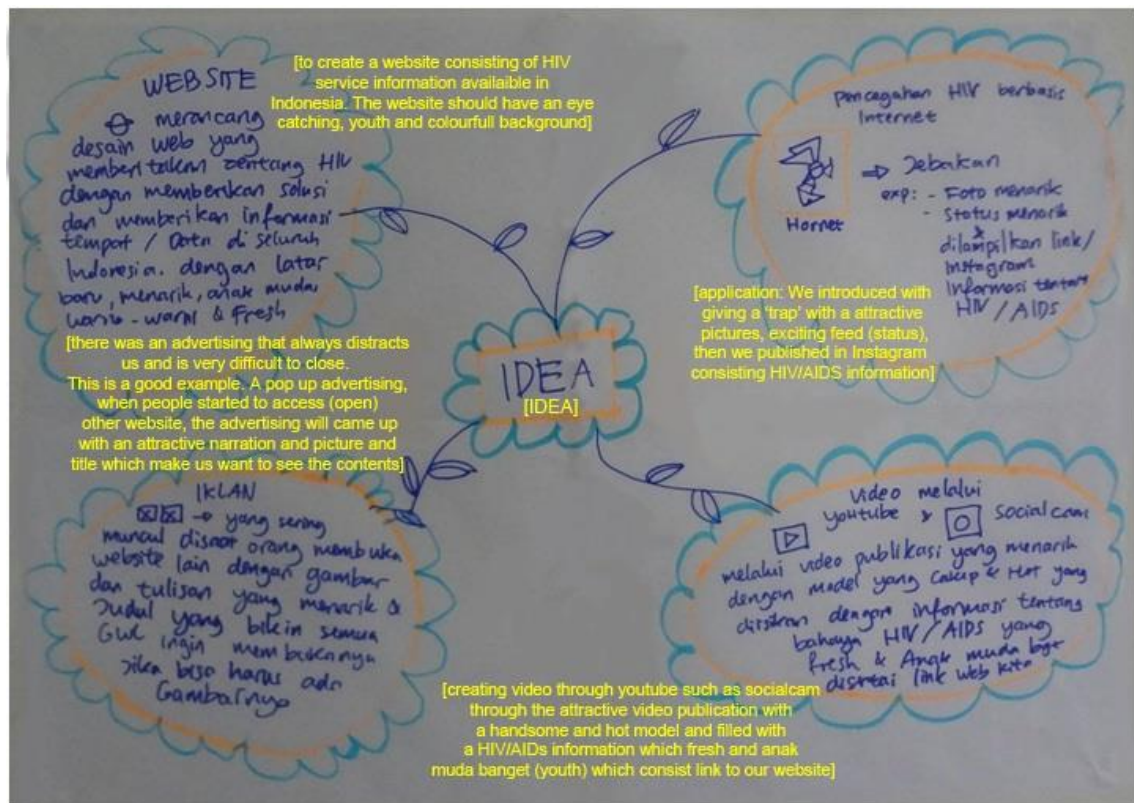 WEBSITE
merancang
desain web yang
memberitakan tentang HIV
dengan memberikan solusi
dan memberikan informasi
tempat / Data di seluruh
Indonesia. dengan latar
baru, menarik, anak muda,
warna-warni & Fresh
[to create a website consisting of HIV
service information availaible in
Indonesia. The website should have an eye
catching, youth and colourfull background]
Pencegahan HIV berbasis
Internet
Hornet
⇒ Jebakan
exp: - Foto menarik
- Status menarik
&
ditampilkan link/
Instagram
Informasi tentang
HIV/AIDS
[application: We introduced with
giving a 'trap' with a attractive
pictures, exciting feed (status),
then we published in Instagram
consisting HIV/AIDS information]
IDEA
[IDEA]
[there was an advertising that always distracts
us and is very difficult to close.
This is a good example. A pop up advertising,
when people started to access (open)
other website, the advertising will came up
with an attractive narration and picture and
title which make us want to see the contents]
IKLAN
→ yang sering
muncul disaat orang membuka
website lain dengan gambar
dan tulisan yang menarik &
Judul yang bikin semua
GWL ingin membukanya
jika bisa harus ada
Gambarnya
video melalui
youtube & socialcam
melalui video publikasi yang menarik
dengan model yang Cakep & Hot yang
disikan dengan informasi tentang
bahaya HIV/AIDS yang
fresh & Anak muda bgt
disertai link web kita
[creating video through youtube such as socialcam
through the attractive video publication with
a handsome and hot model and filled with
a HIV/AIDs information which fresh and anak
muda banget (youth) which consist link to our website]